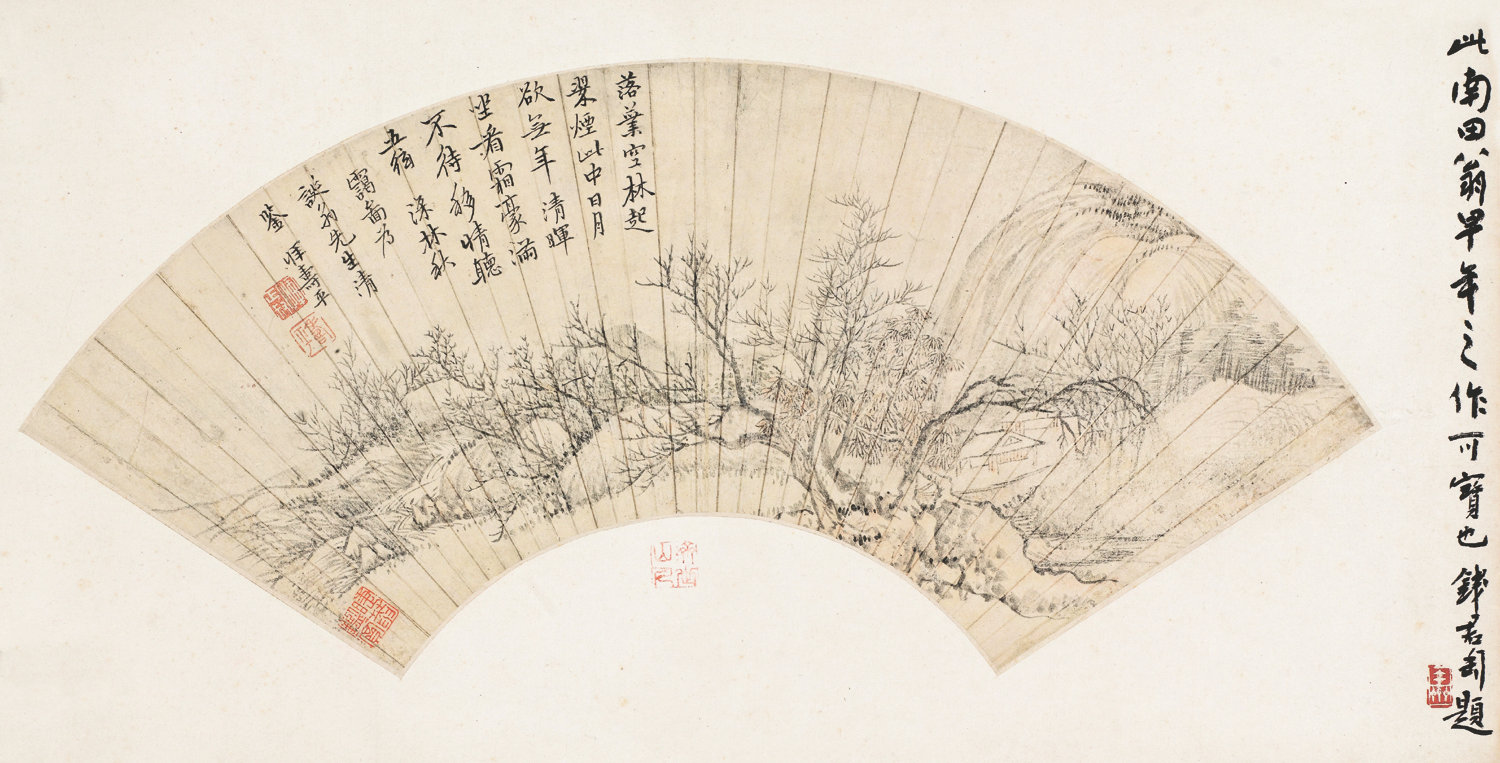 此南田翁早年之作可寶也 錢君匋題
落葉空林起
翠煙此中日月
欲無年 清暉
坐看霜豪滿
不待移情聽
五弦 深林秋
靄圖為
先生清
鑒 惲壽平